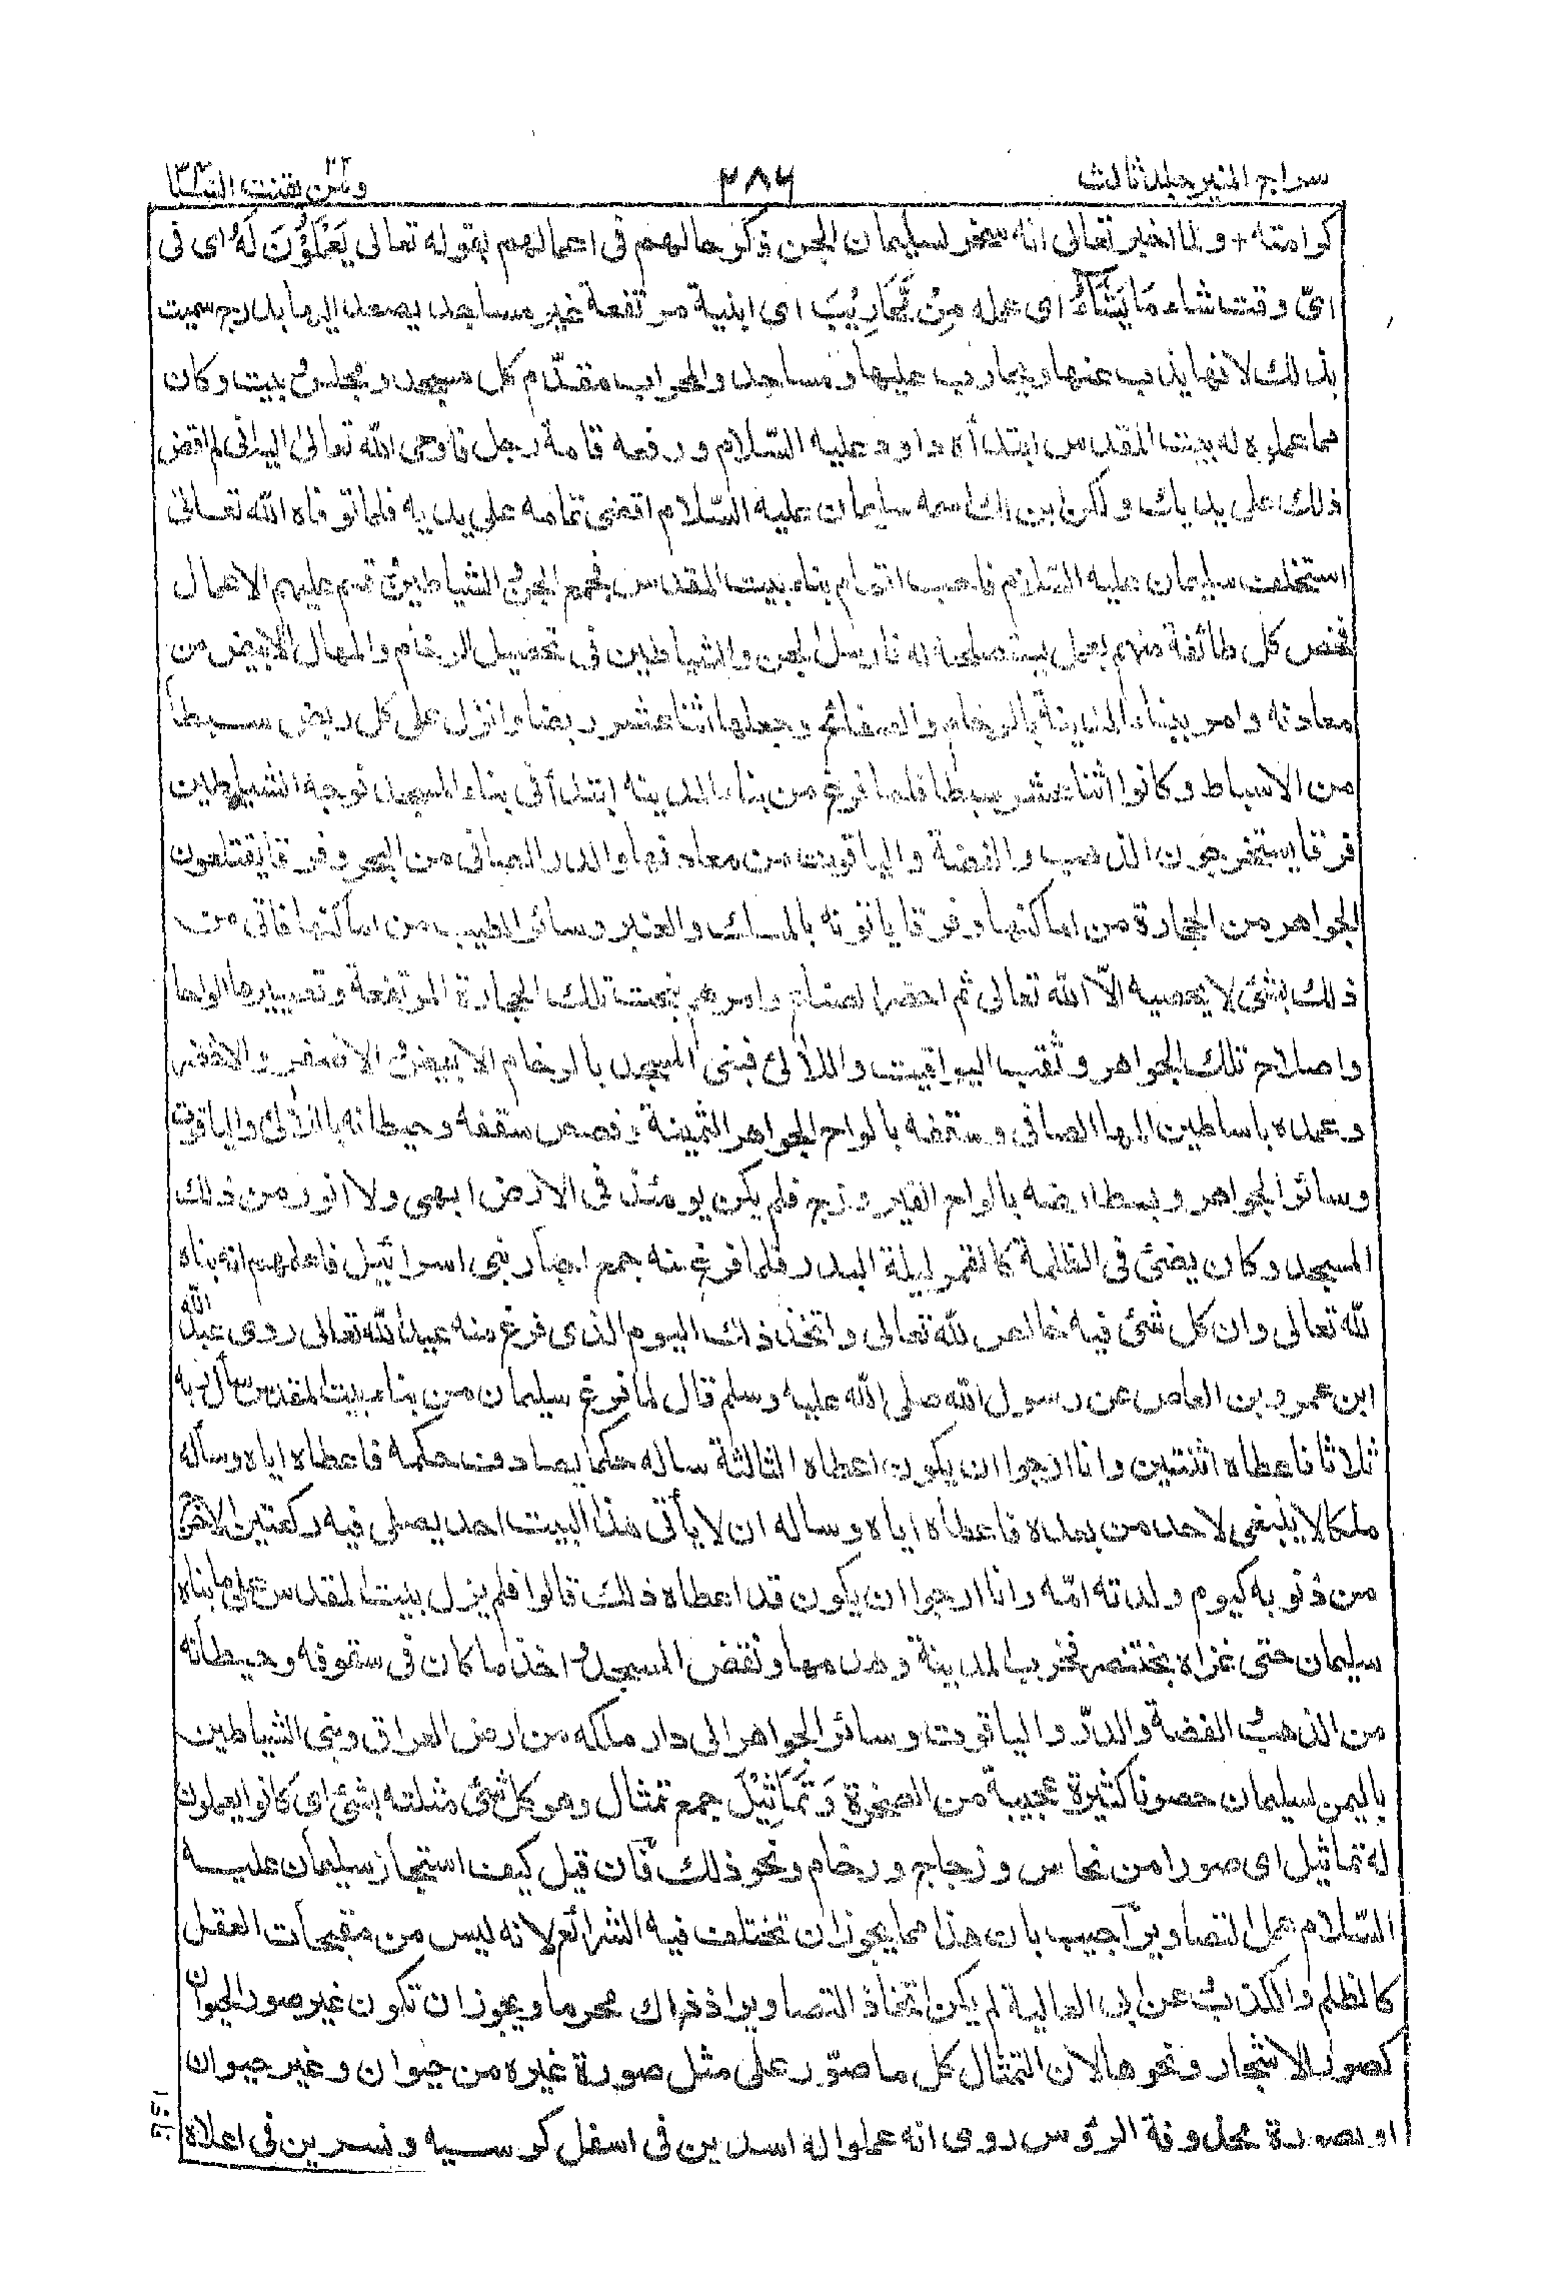 سراج المنير جلد ثالث
٢٨٦
ومن يقنت السبا
كرامته + ولما اخبر تعالى انه سخر لسليمان الجن ذكر حالهم فى اعمالهم بقوله تعالى يَعْمَلُوْنَ لَهٗ اى فى
اىّ وقت شاء مَا يَشَآءُ اى عمله مِنْ مَّحَارِيْبَ اى ابنية مرتفعة غير مساجد يصعد اليها بدرج سميت
بذلك لانها يذب عنها ويحارب عليها ومساجد والمحراب مقدّم كل مسجد ومجلس وبيت وكان
مما عملوه له بيت المقدس ابتدأه داود عليه السّلام ورفعه قامة رجل فاوحى الله تعالى اليه انى لم اقض
ذلك على يديك ولكن ابن لك اسمه سليمان عليه السّلام اقضى تمامه على يديه فلما توفاه الله تعالى
استخلف سليمان عليه السّلام فاحب اتمام بناء بيت المقدس فجمع الجن والشياطين وقسم عليهم الاعمال
فخص كل طائفة منهم بعمل يستصلحه له فارسل الجن والشياطين فى تحصيل الرخام والمها الابيض من
معادنه وامر ببناء المدينة بالرخام والصفائح وجعلها اثنا عشر ربضا وانزل على كل ربض سبطا
من الاسباط وكانوا اثنا عشر سبطا فلما فرغ من بناء المدينة ابتدأ فى بناء المسجد فوجه الشياطين
فرقا يستخرجون الذهب والفضة والياقوت من معادنها والدر الصافى من البحر وفرقا يقتلعون
الجواهر من الحجارة من اماكنها وفرقا ياتونه بالمسك والعنبر وسائر الطيب من اماكنها فاتى من
ذلك بشئ لا يحصيه الّا الله تعالى ثم احضر الصناع وامرهم بنحت تلك الحجارة المرتفعة وتصييرها الواحا
واصلاح تلك الجواهر وثقب اليواقيت واللآلئ فبنى المسجد بالرخام الابيض والاصفر والاخضر
وعمده باساطين المها الصافى وسقفه بالواح الجواهر الثمينة وفصص سقفه وحيطانه باللآلئ والياقوت
وسائر الجواهر وبسط ارضه بالواح الفيروزج فلم يكن يومئذ فى الارض ابهى ولا انور من ذلك
المسجد وكان يضئ فى الظلمة كالقمر ليلة البدر فلما فرغ منه جمع احبار بنى اسرائيل فاعلمهم انه بناه
لله تعالى وان كل شئ فيه خالص لله تعالى واتخذ ذلك اليوم الذى فرغ منه عيدا لله تعالى روى عبد الله
ابن عمرو بن العاص عن رسول الله صلى الله عليه وسلم قال لما فرغ سليمان من بناء بيت المقدس سأل ربه
ثلاثا فاعطاه اثنتين وانا ارجوا ان يكون اعطاه الثالثة ساله حكما يصادف حكمه فاعطاه اياه وسأله
ملكا لا ينبغى لاحد من بعده فاعطاه اياه وساله ان لا يأتى هذا البيت احد يصلى فيه ركعتين الا خرج
من ذنوبه كيوم ولدته امّه وانا ارجوا ان يكون قد اعطاه ذلك قالوا فلم يزل بيت المقدس على ما بناه
سليمان حتى غزاه بختنصر فخرب المدينة وهدمها ونقض المسجد واخذ ما كان فى سقوفه وحيطانه
من الذهب والفضة والدرّ والياقوت وسائر الجواهر الى دار ملكه من ارض العراق وبنى الشياطين
باليمن لسليمان حصونا كثيرة عجيبة من الصخرة وَتَمَاثِيْلَ جمع تمثال وهو كل شئ مثلته بشئ اى كانوا يعملون
له تماثيل اى صورا من نحاس وزجاج ورخام ونحو ذلك فان قيل كيف استجاز سليمان عليه
السّلام عمل التصاوير اجيب بان هذا مما يجوز ان تختلف فيه الشرائع لانه ليس من مقبحات العقل
كالظلم والكذب وعن ابى العالية لم يكن اتخاذ التصاوير اذ ذاك محرما ويجوز ان تكون غير صور الحيوان
كصور الاشجار ونحوها لان التمثال كل ما صوّر على مثل صورة غيره من حيوان وغير حيوان
او بصورة محذوفة الرؤس روى انه عملوا له اسدين فى اسفل كرسيه ونسرين فى اعلاه